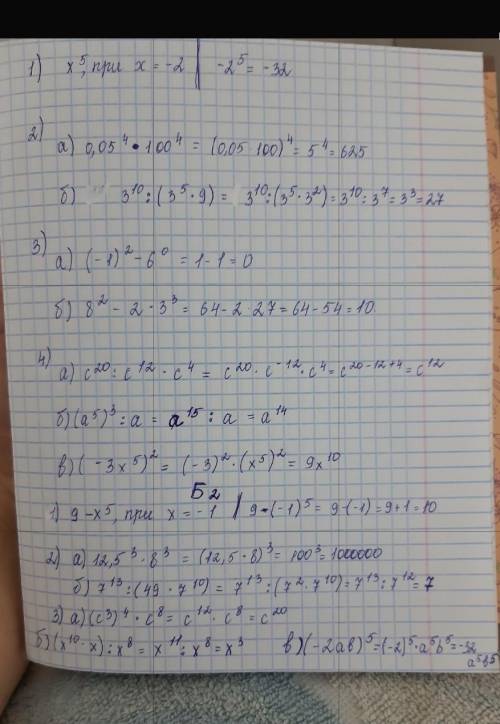 1) x⁵, при x = -2 | -2⁵ = -32
2)
а) 0,05⁴ • 100⁴ = (0,05 100)⁴ = 5⁴ = 625
б) 3¹⁰ : (3⁵ · 9) = 3¹⁰ : (3⁵ · 3²) = 3¹⁰ : 3⁷ = 3³ = 27
3)
а) (-1)² - 6⁰ = 1 - 1 = 0
б) 8² - 2 · 3³ = 64 - 2 · 27 = 64 - 54 = 10.
4)
а) c²⁰ : c¹² · c⁴ = c²⁰ · c⁻¹² · c⁴ = c²⁰⁻¹²⁺⁴ = c¹²
б) (a⁵)³ : a = a¹⁵ : a = a¹⁴
в) (-3x⁵)² = (-3)² · (x⁵)² = 9x¹⁰
Б2
1) 9 - x⁵, при x = -1 | 9 - (-1)⁵ = 9 - (-1) = 9 + 1 = 10
2) а) 12,5³ · 8³ = (12,5 · 8)³ = 100³ = 1000000
б) 7¹³ : (49 · 7¹⁰) = 7¹³ : (7² · 7¹⁰) = 7¹³ : 7¹² = 7
3) а) (c³)⁴ · c⁸ = c¹² · c⁸ = c²⁰
б) (x¹⁰ · x) : x⁸ = x¹¹ : x⁸ = x³ в) (-2ab)⁵ = (-2)⁵ · a⁵b⁵ = -32
a⁵b⁵